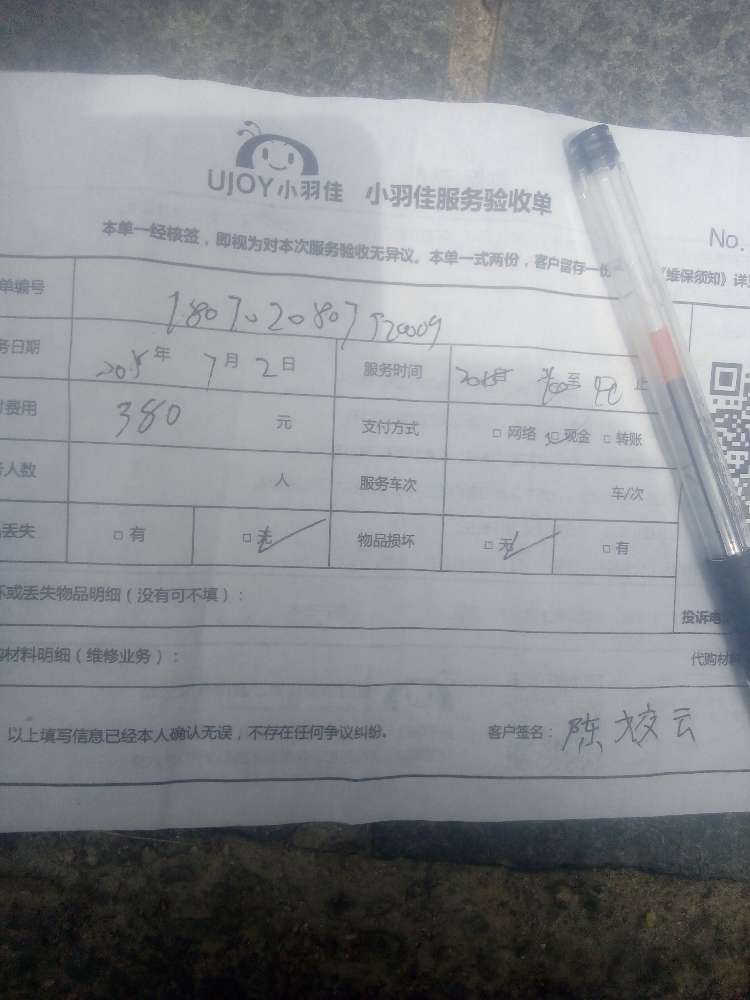 UJOY小羽佳 小羽佳服务验收单
No.
本单一经核签，即视为对本次服务验收无异议。本单一式两份，客户留存一份 《维保须知》详
单编号 1807020807920009
务日期 2018年 7月2日 服务时间 至 止
费用 380 元 支付方式 □网络 □现金 □转账
务人数 人 服务车次 车/次
丢失 □有 □无 物品损坏 □无 □有
坏或丢失物品明细（没有可不填）： 投诉电
购材料明细（维修业务）： 代购材
以上填写信息已经本人确认无误，不存在任何争议纠纷。 客户签名：陈姣云